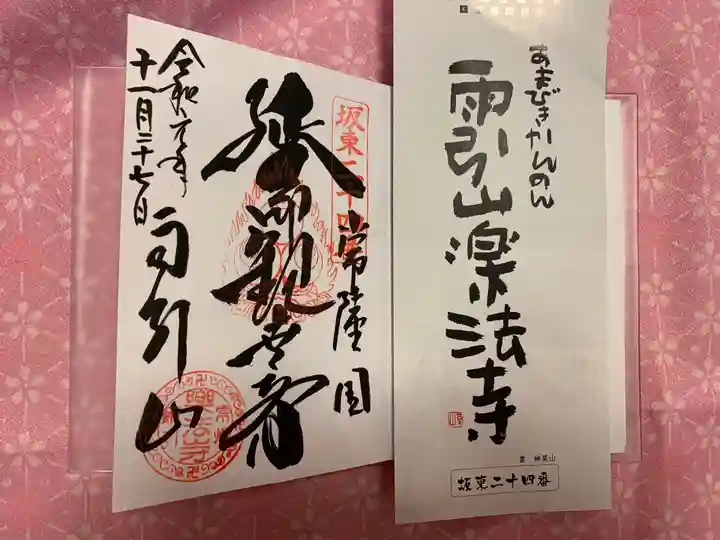 あまびきかんのん
雨引山楽法寺
書 榊莫山
坂東二十四番
坂東二十四番
常陸国
延命観世音
令和元年
十一月二十七日
雨引山